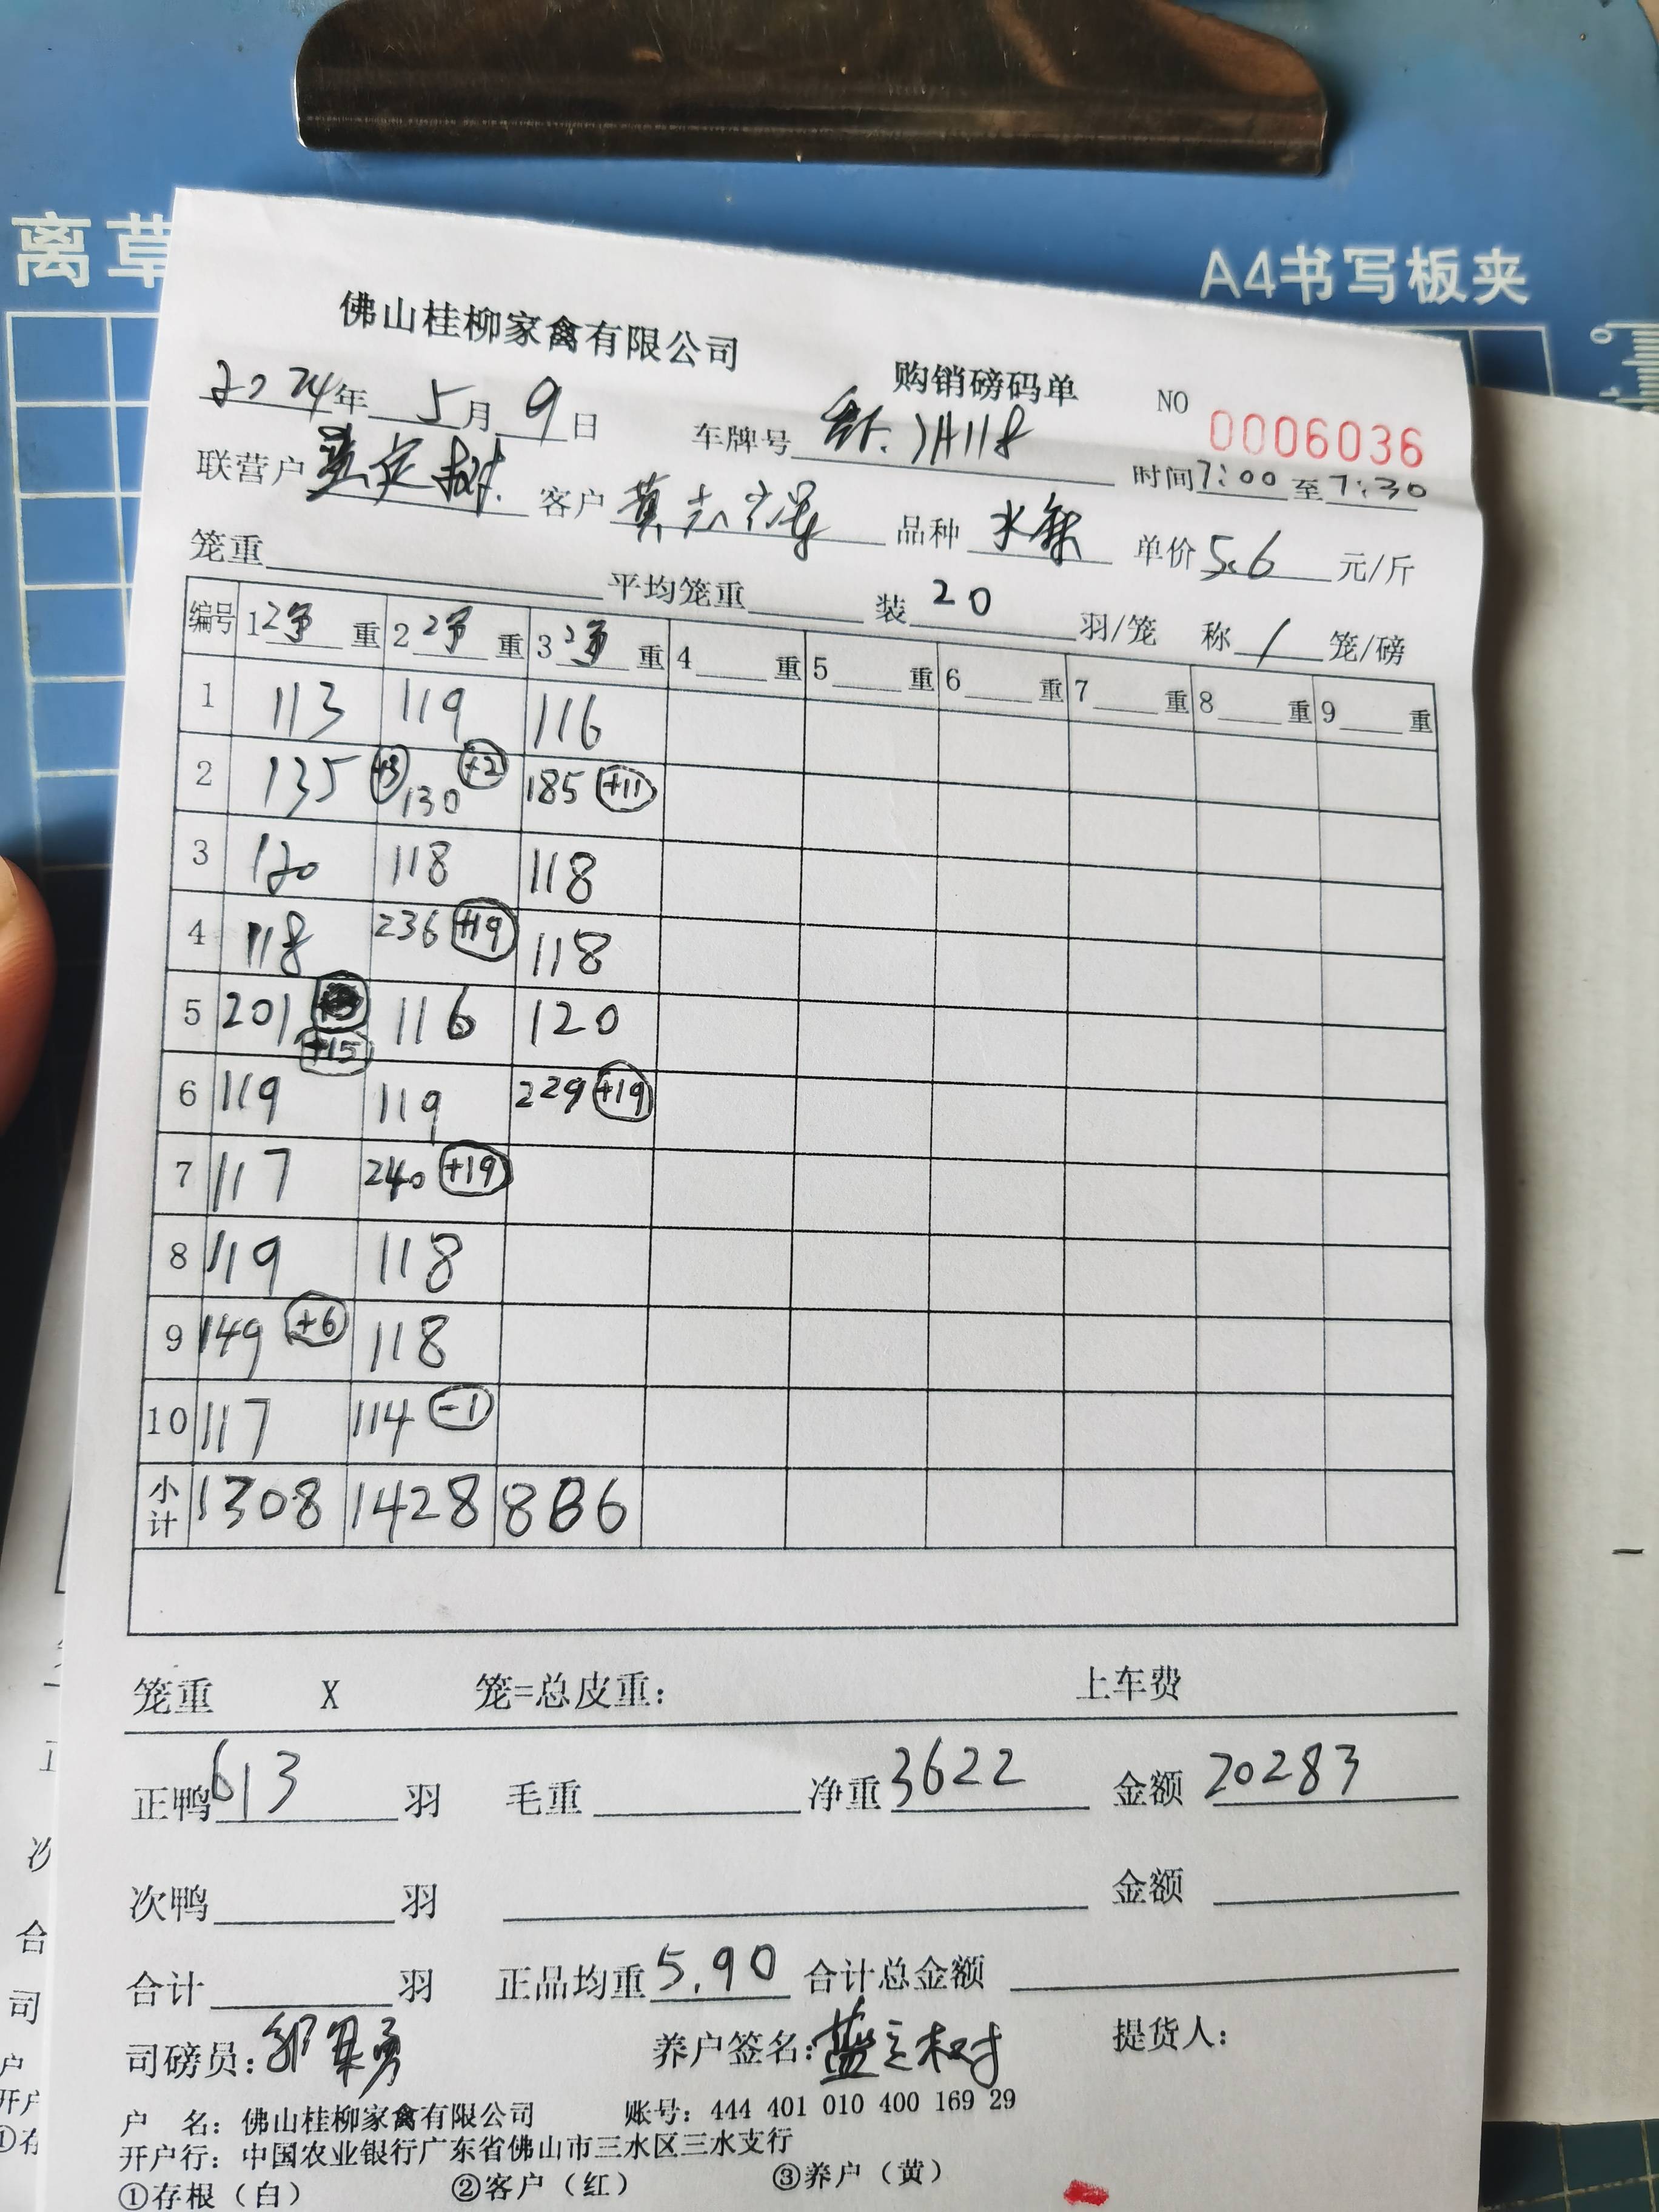 离草
A4书写板夹
佛山桂柳家禽有限公司 购销磅码单 NO 0006036
2024年 5月 9日 车牌号 H118 时间7:00至7:30
联营户 蓝定树 客户 黄志 品种 水鸭 单价5.6元/斤
笼重 平均笼重 装 20 羽/笼 称 1 笼/磅
编号 1净重 2净重 3净重 4重 5重 6重 7重 8重 9重
1 113 119 116
2 135 +3 130 +2 185 +11
3 120 118 118
4 118 236 +19 118
5 201 +15 116 120
6 119 119 229 +19
7 117 240 +19
8 119 118
9 149 +6 118
10 117 114 -1
小计 1308 1428 886
笼重 X 笼=总皮重: 上车费
正鸭 613 羽 毛重 净重 3622 金额 20283
次鸭 羽 金额
合计 羽 正品均重 5.90 合计总金额
司磅员: 养户签名: 蓝定树 提货人:
户 名: 佛山桂柳家禽有限公司 账号: 444 401 010 400 169 29
开户行: 中国农业银行广东省佛山市三水区三水支行
①存根（白） ②客户（红） ③养户（黄）